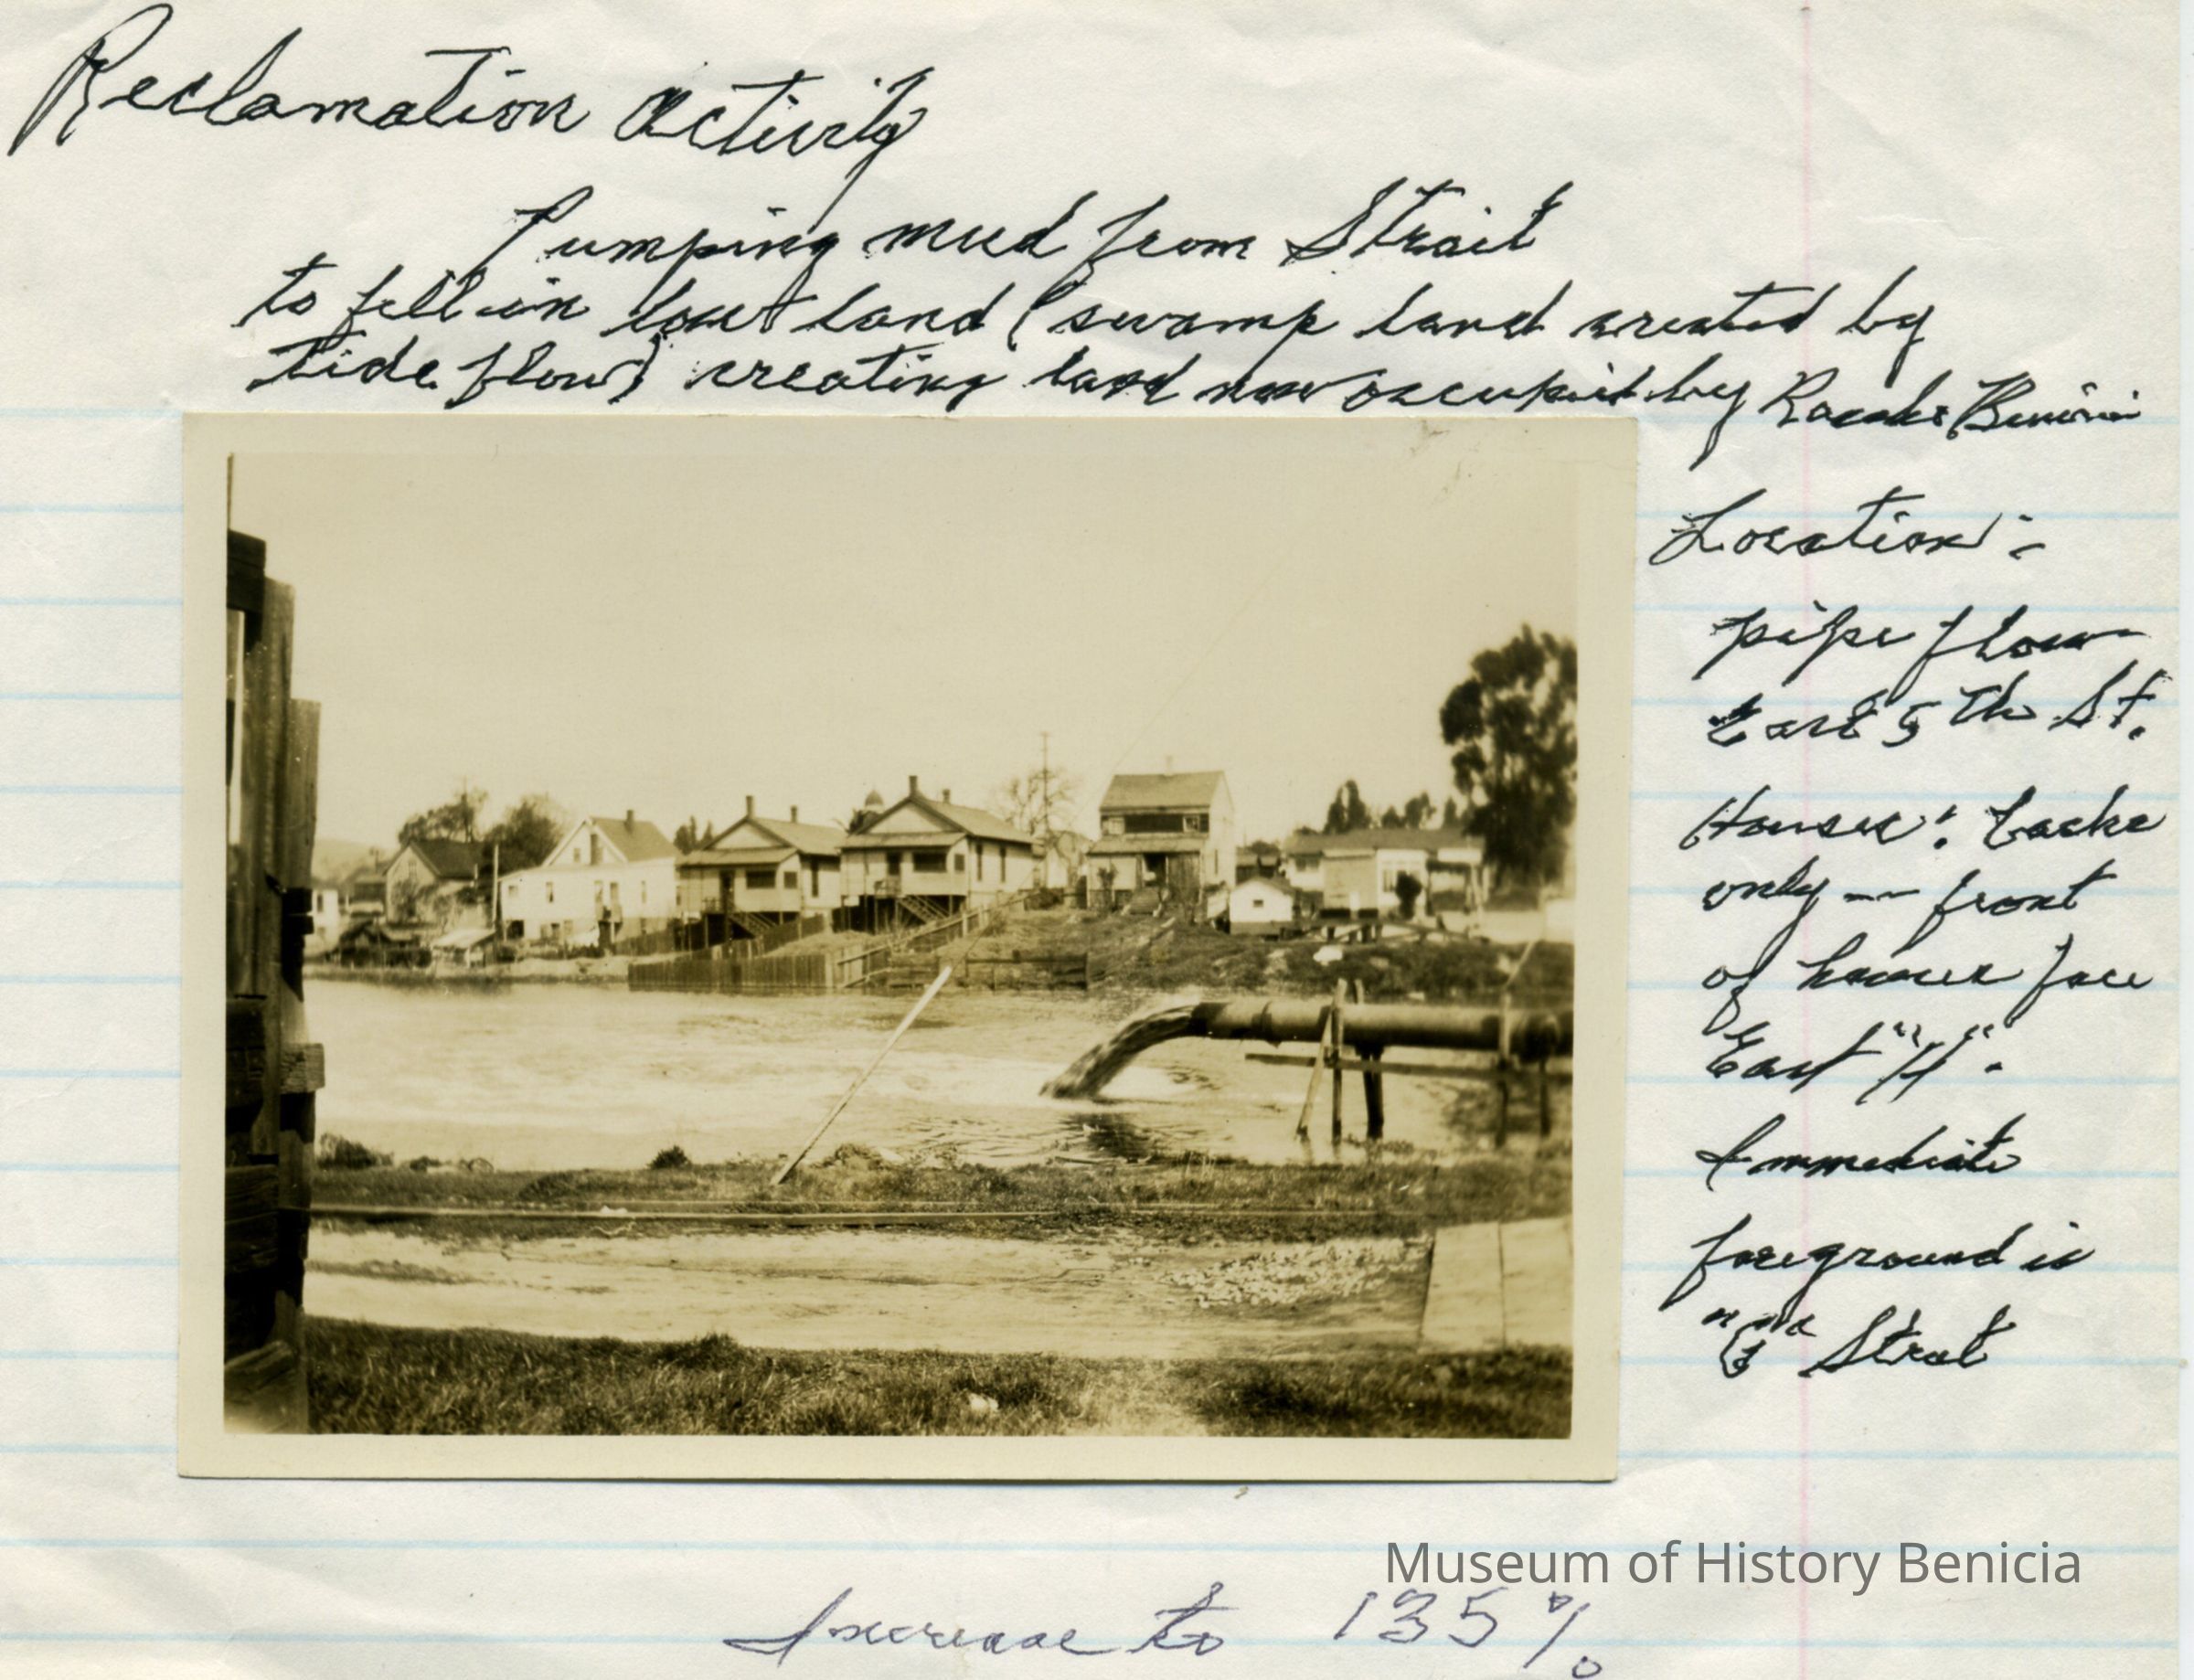 Reclamation Activity
Pumping mud from Strait
to fill in lowet land (swamp land created by
tide flow) creating land now occupied by
Location:-
pipe flow
East 5th St.
Houses: backs
only -- front
of houses face
East "H".
Immediate
foreground is
Street
Museum of History Benicia
Increase to 135%